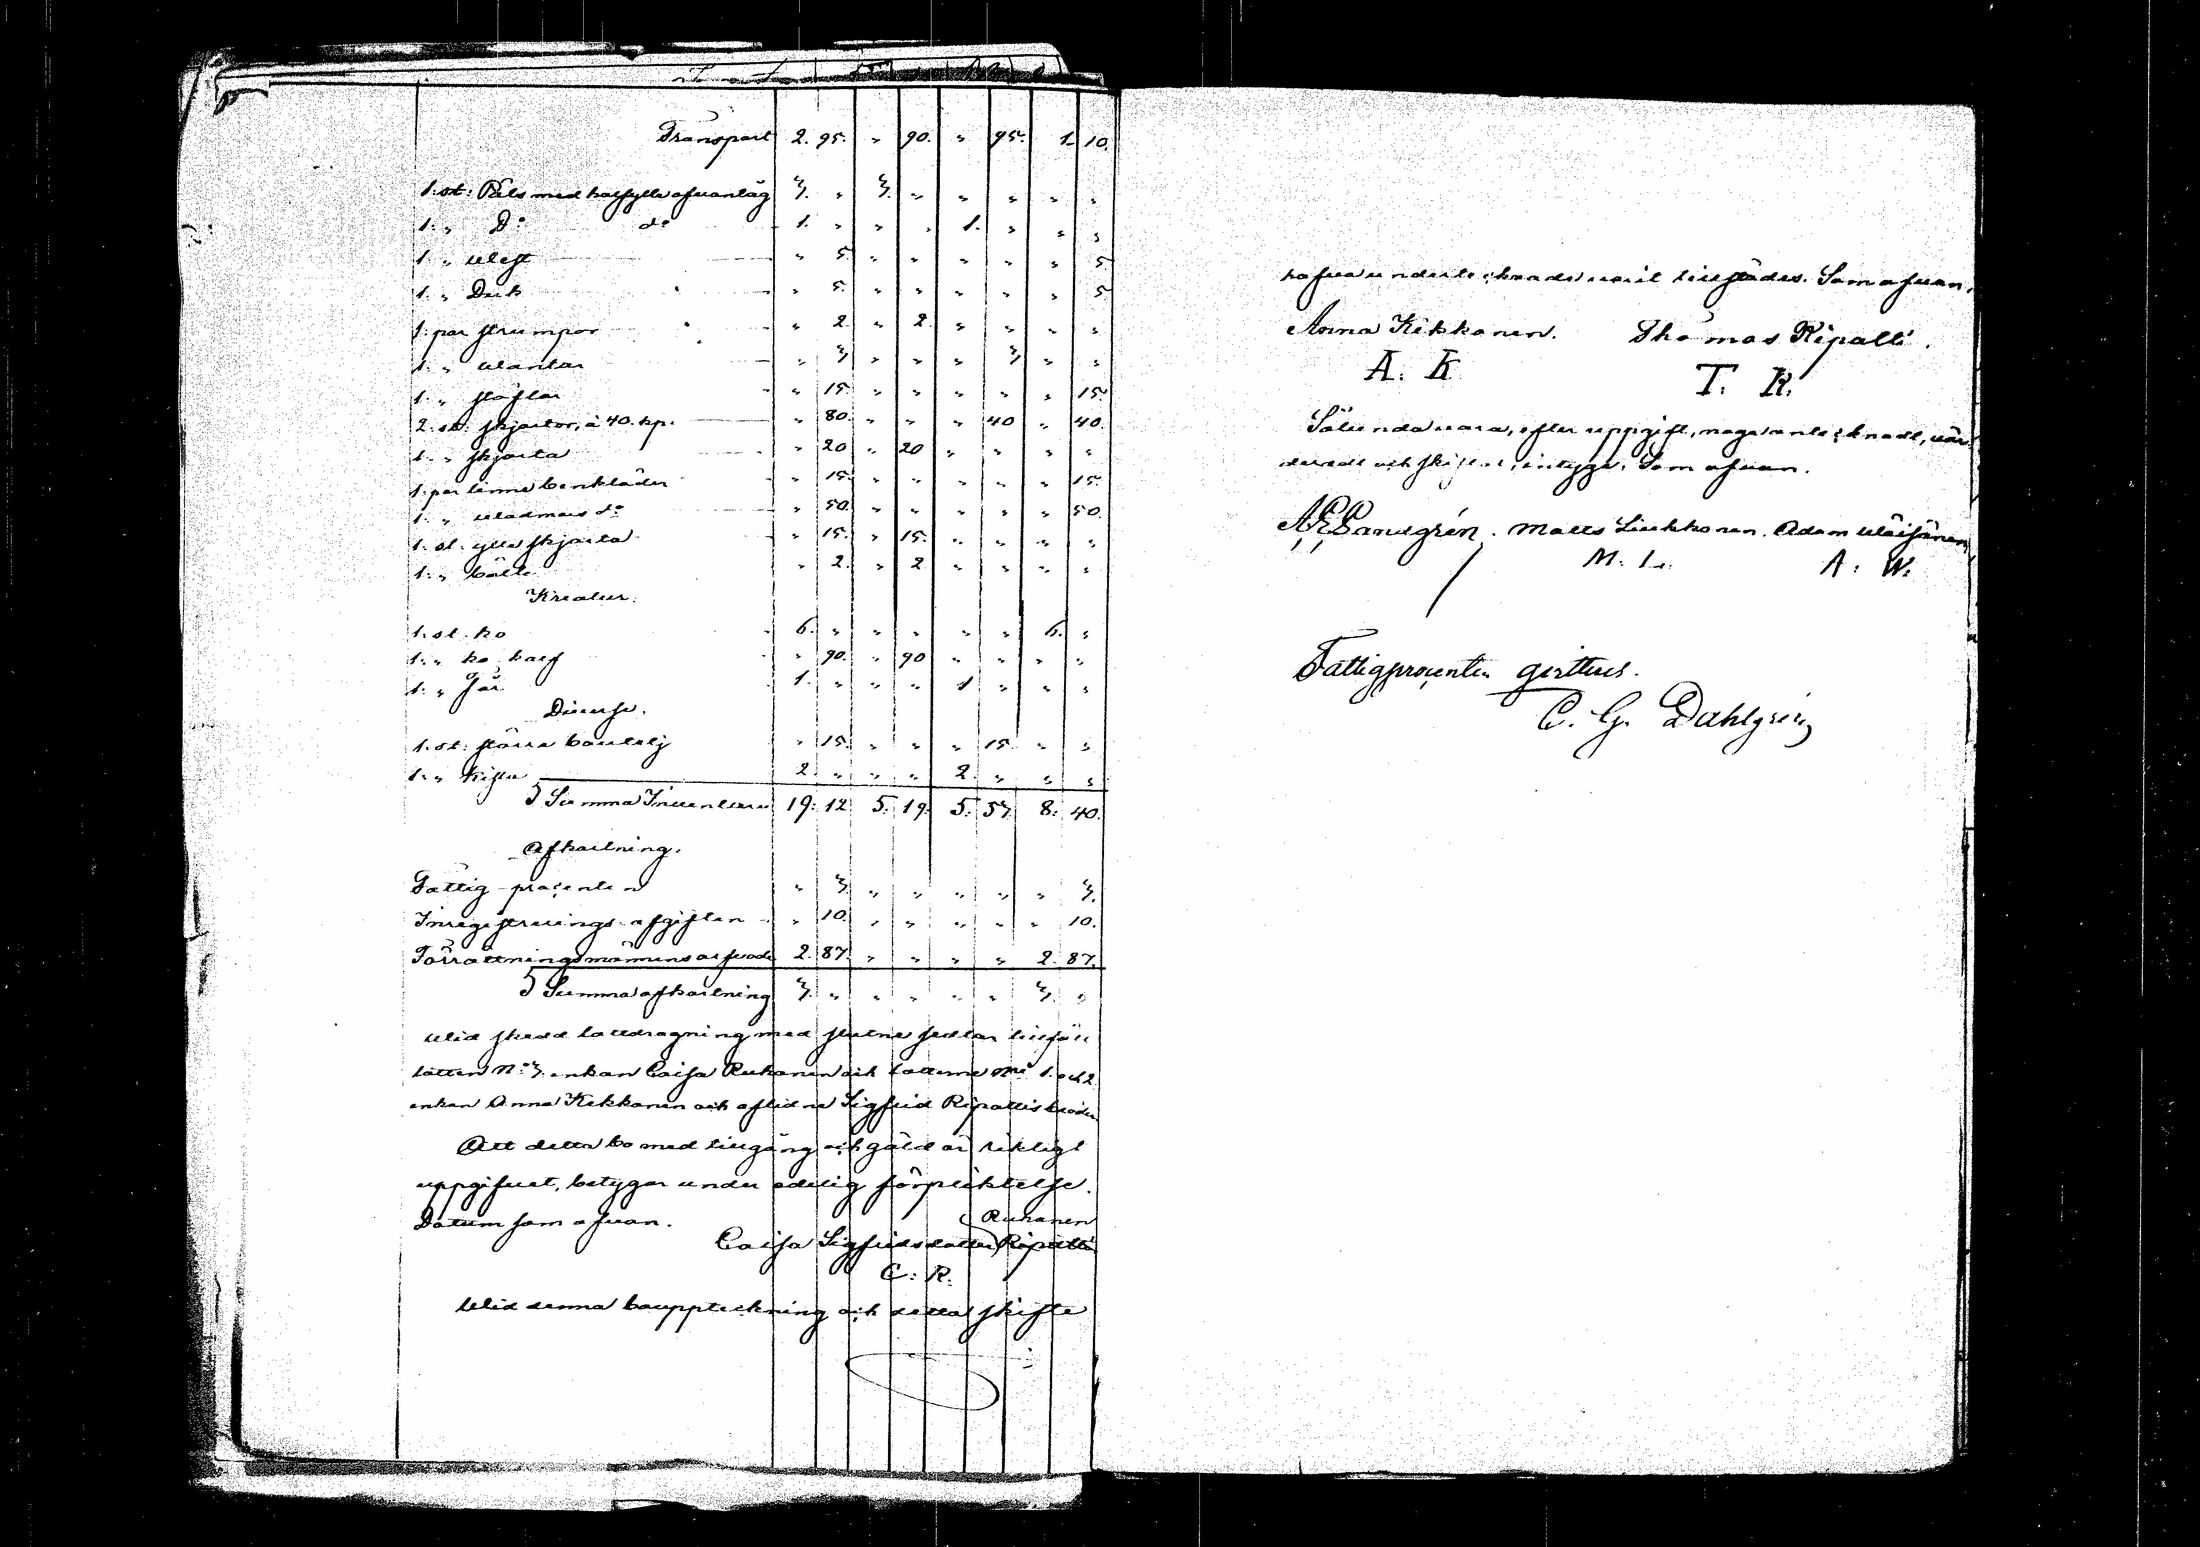 Transport 2. 95. " 90. " 95. 1. 10.
1. st: Päls med halfylle ofvantåg 3. " 3. " " " " "
1. " D:o d:o 1. " " " 1. " " "
1. " west " 5. " " " " " 5
1. " Duk " 5. " " " " " 5
1. par strumpor " 2. " 2. " " " "
1. " wantar " 3 " " " 3 " "
1. " stöflar " 15. " " " " " 15
2. st. skjortor, à 40. kp. " 80. " " " 40 " 40.
1. " skjorta " 20 " 20 " " " "
1. par linne benkläder " 15. " " " " " 15.
1. " wadmals d:o " 50. " " " " " 50.
1. st. ylle skjorta " 15. " 15. " " " "
1. " bälte " 2. " 2 " " " "
Kreatur.
1. st. ko 6. " " " " " 6. "
1. " ko kalf " 90. " 90 " " " "
1. " får 1. " " " 1 " " "
Diverse.
1. st: större bouteilj " 15. " " " 15. " "
1. " Kista 2. " " " 2. " " "
Summa Inventarium 19: 12 5. 19. 5. 53. 8. 40.
Afkortning.
Fattig-procenten " 3. " " " " " 3.
Inregistrerings afgiften " 10. " " " " " 10.
Förrättningsmännens arfvode 2. 87. " " " " 2. 87.
Summa afkortning 3. " " " " " 3. "
Wid skedd lottdragning med slutna sedlar tillföll
lotten N:o 3. enkan Caisa Ruhanen och lotterne N:ris 1. och 2
enkan Anna Kekkonen och aflidne Sigfrid Ripattis broder
Att detta bo med tillgång och gäld är riktigt
uppgifvet, betygar under edelig förpliktelse.
Datum som ofvan.
Ruhanen
Caisa Sigfridsdotter Ripatti
C. R.
Wid denna bouppteckning och detta skifte
hafva undertecknade varit tillstädes. Som ofvan.
Anna Kekkonen. Thomas Ripatti.
A. K. T. R.
Sålunda vara, efter uppgift, noga antecknadt, vär-
deradt och skiftadt, intyga. Som ofvan.
Sandgrén. Matts Liukkonen. Adam Wäisänen
M. L. A. W.
Fattigprocenten qvitteras.
C. G. Dahlgrén